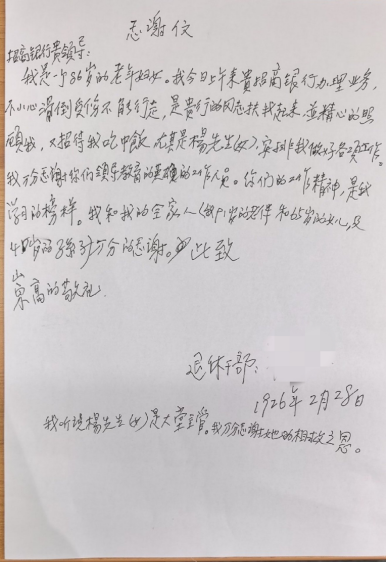 感谢信
招商银行贵领导:
我是一个86岁的老年妇女。我今日上午来貴招商银行办理业务,
不小心滑倒负伤不能行走,是贵行的同志扶我起来,並精心的照
顾我,又招待我吃中飯,尤其是楊先生(女),安排我做好各项工作。
我十分感谢你们领导教育的英雄的工作人员。你们的工作精神,是我
学习的榜样。我和我的全家人(91岁的老伴和65岁的女儿,及
40岁的孙子)十分的感谢。此致
崇高的敬礼
退休干部:
1926年2月28日
我听说楊先生(女)是大堂主管。我十分感谢她的相救之恩。